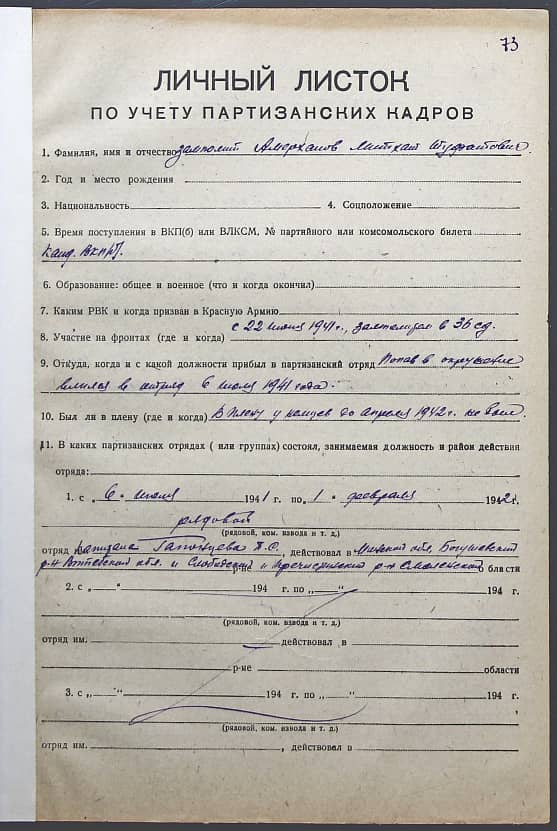 73
ЛИЧНЫЙ ЛИСТОК
ПО УЧЕТУ ПАРТИЗАНСКИХ КАДРОВ
1. Фамилия, имя и отчество замполит Амерханов
2. Год и место рождения
3. Национальность 4. Соцположение
5. Время поступления в ВКП(б) или ВЛКСМ, № партийного или комсомольского билета
канд. ВКП(б).
6. Образование: общее и военное (что и когда окончил)
7. Каким РВК и когда призван в Красную Армию
8. Участие на фронтах (где и когда) с 22 июня 1941 г., замполитом в 36 сд.
9. Откуда, когда и с какой должности прибыл в партизанский отряд Попав в окружение
влился в отряд 6 июля 1941 года.
10. Был ли в плену (где и когда) В плену у немцев до апреля 1942 г. не был.
11. В каких партизанских отрядах ( или группах) состоял, занимаемая должность и район действия
отряда:
1. с „ 6 „ июля 1941 г. по „ 1 „ февраля 1942 г.
рядовой
(рядовой, ком. взвода и т. д.)
отряд капитана П.С., действовал в Минской обл. Богушевский
р-н Витебской обл. и Слободской и р-н Смоленской области
2. с „ “ 194 г. по „ “ 194 г.
(рядовой, ком. взвода и т. д.)
отряд им. действовал в
р-не области
3. с „ “ 194 г. по „ “ 194 г.
(рядовой, ком. взвода и т. д.)
отряд им. , действовал в